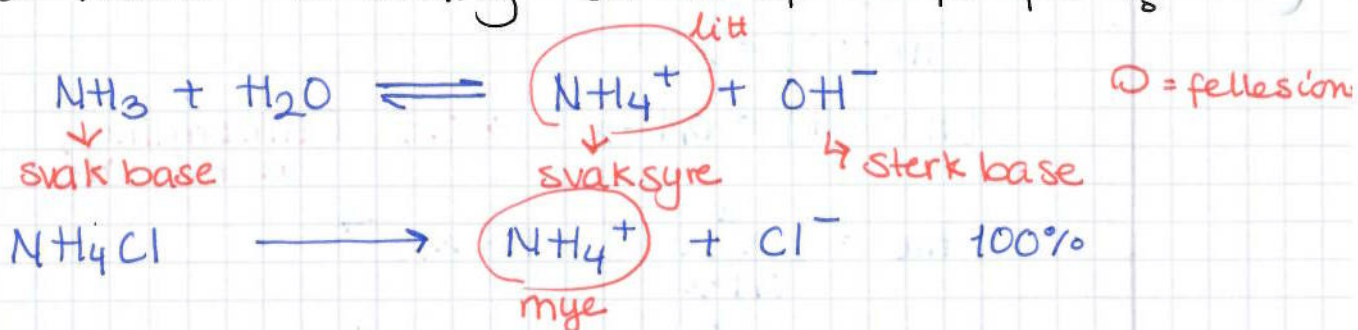 litt
NH₃ + H₂O ⇌ NH₄⁺ + OH⁻ O = fellesion
svak base svak syre ↳ sterk base
NH₄Cl → NH₄⁺ + Cl⁻ 100%
mye